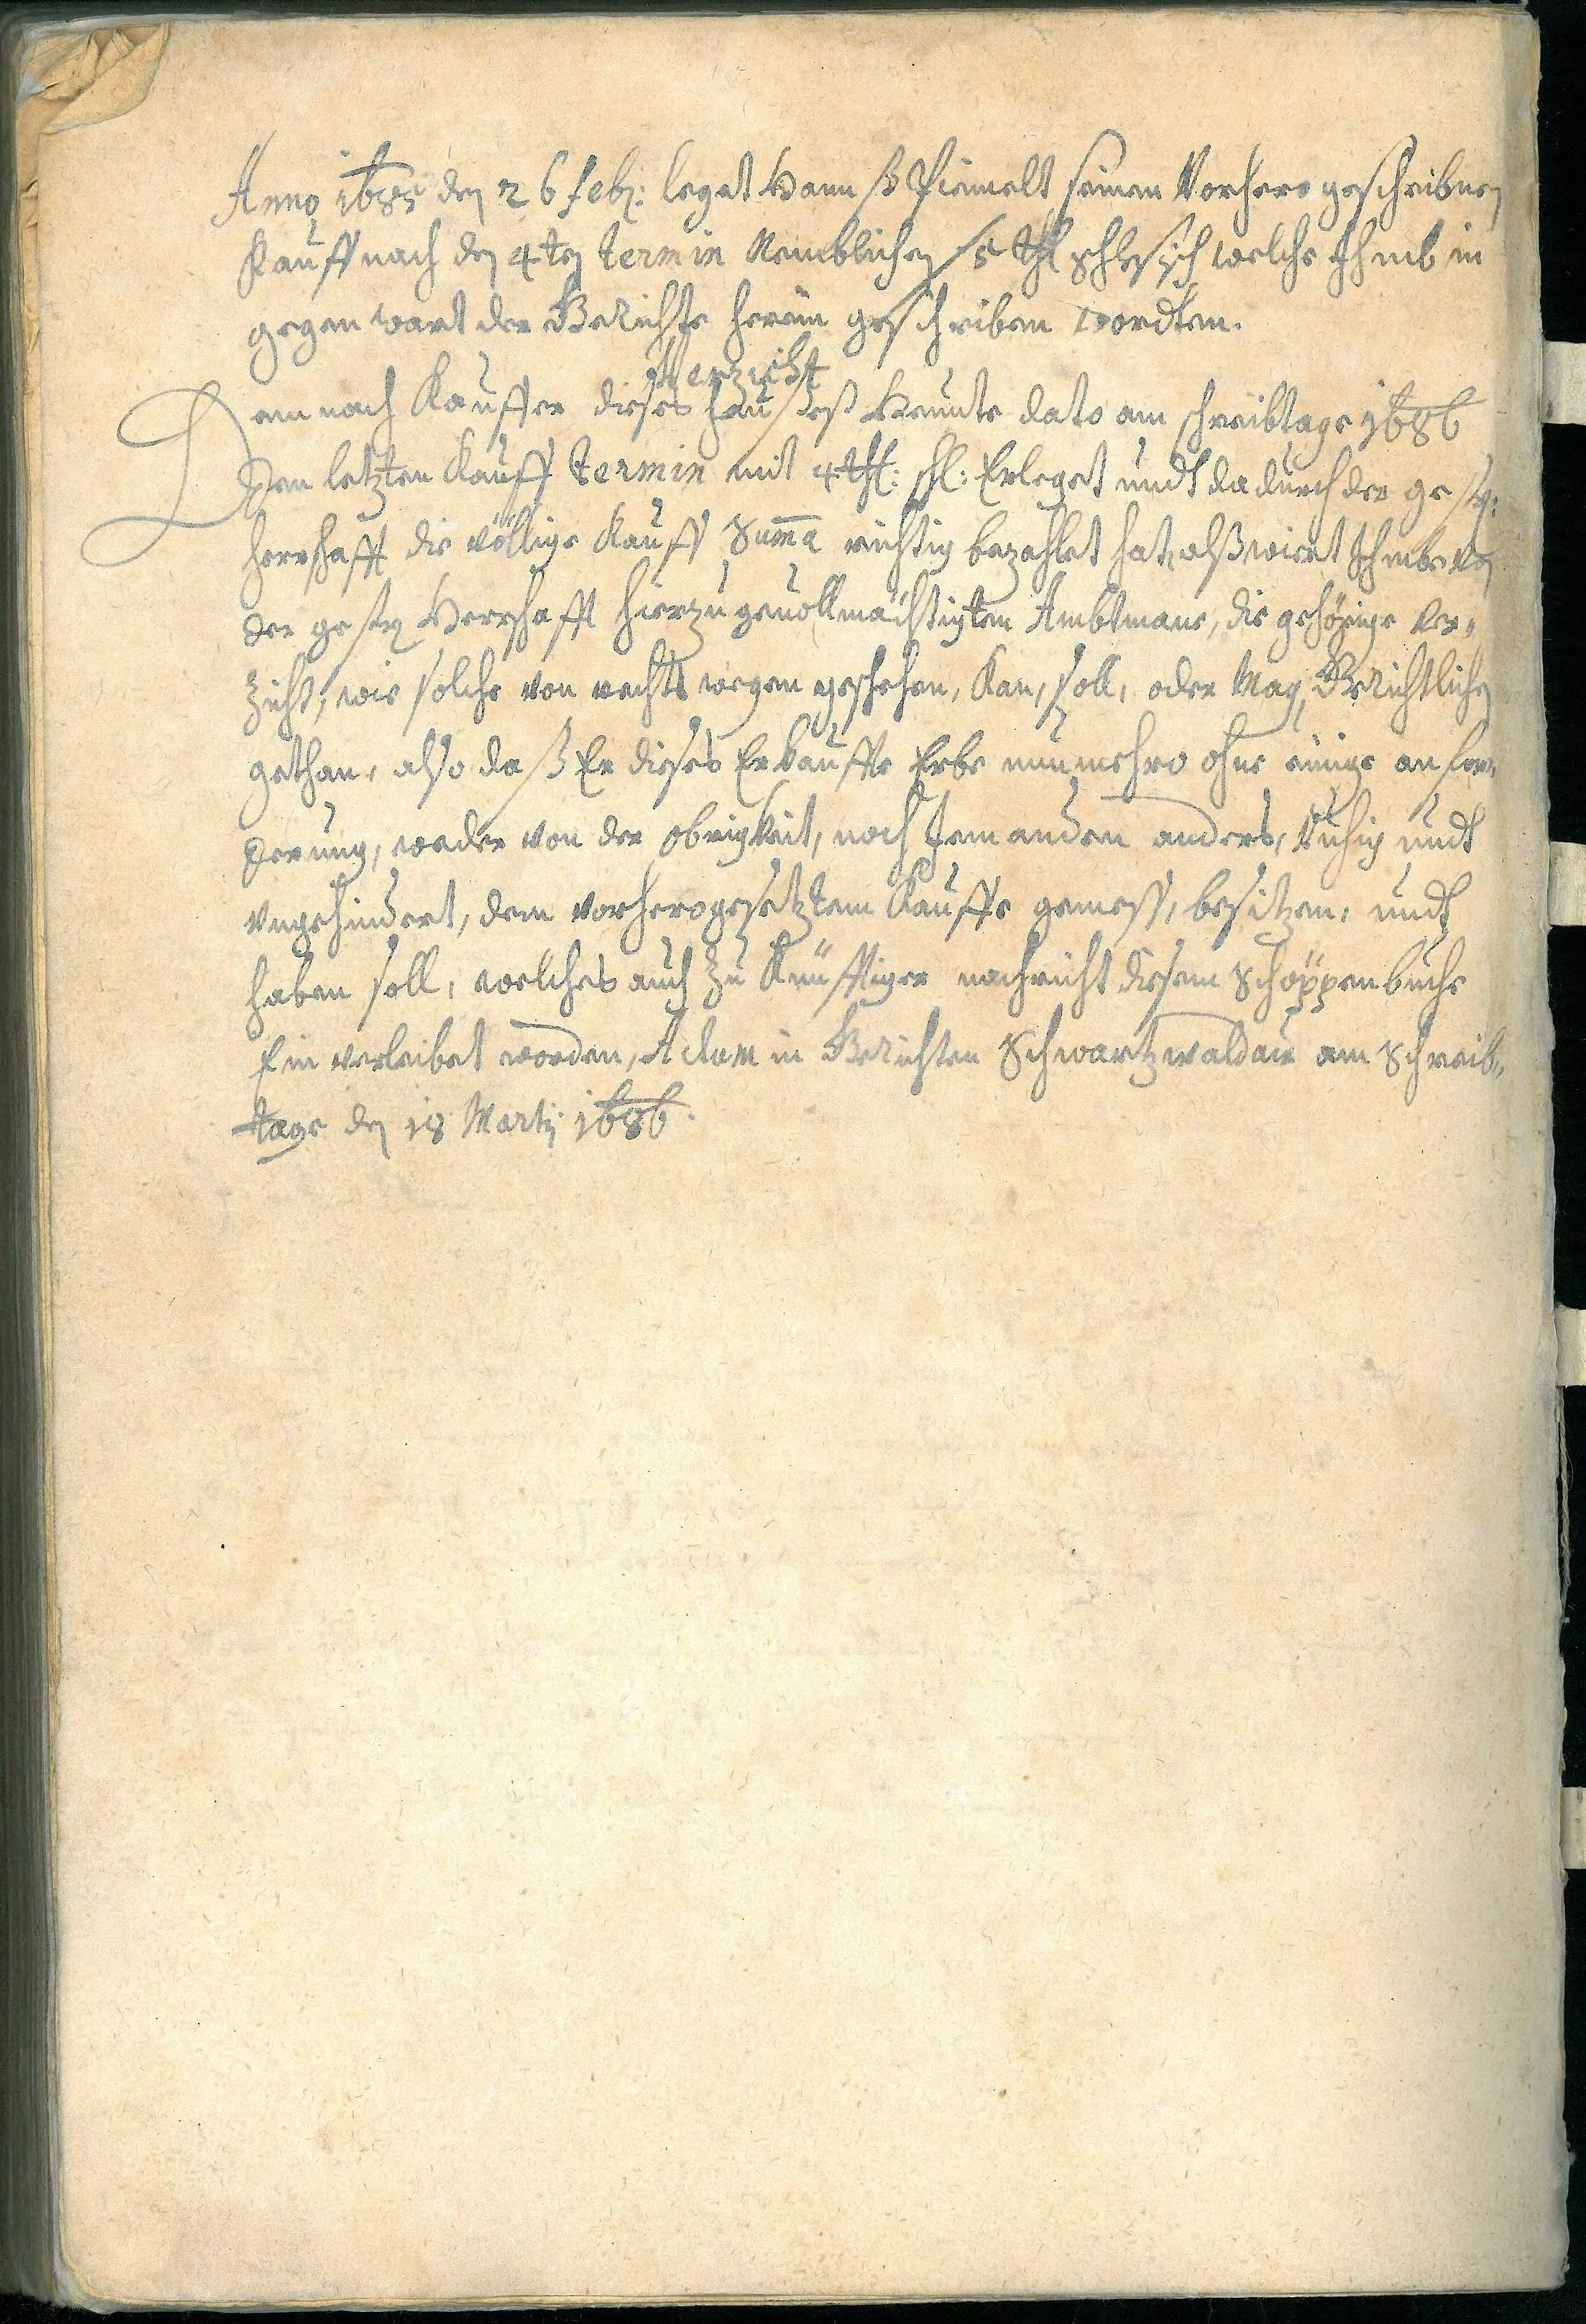 Anno 1685 den 26 Feb: leget Hannß Piemelt seinen Vorhero geschribnen
Kauff nach den 4ten termin Nemblichen 5 thl Schlesisch welche Ihmb in
gegenwart der Gerichte herein geschriben wordten.
Verzicht
Demnach Kauffer dieses Haußeß Heunte dato am schreibtage 1686
Den letzten Kauff termin mit 4 thl: schl: Erleget undt dadurch der gestr:
herrschafft die völlige Kauff Suma richtig bezahlet hat, alß wiert Ihmbe von
der gestr Herrschafft hierzu gevollmächtigten Ambtmane, die gehörige Ver„
Zicht, wie solche von rechts wegen geschehen, Kan, soll, oder Mag, Gerichtlichen
gethan, also daß Er dieses Erkauffte Erbe nunmehro ohne einige anfor„
derung, weder von der obrigkeit, noch Jemanden anders, Ruhig undt
ungehindert, dem vorherogesetztem Kauffe gemess, besitzen, undt
haben soll, welches auch Zu Künfftiger nachricht diesem Schöppenbuche
Ein verleibet worden, Actum in Gerichten Schwartzwaldau am Schreib„
tage den 18 Martij 1686.